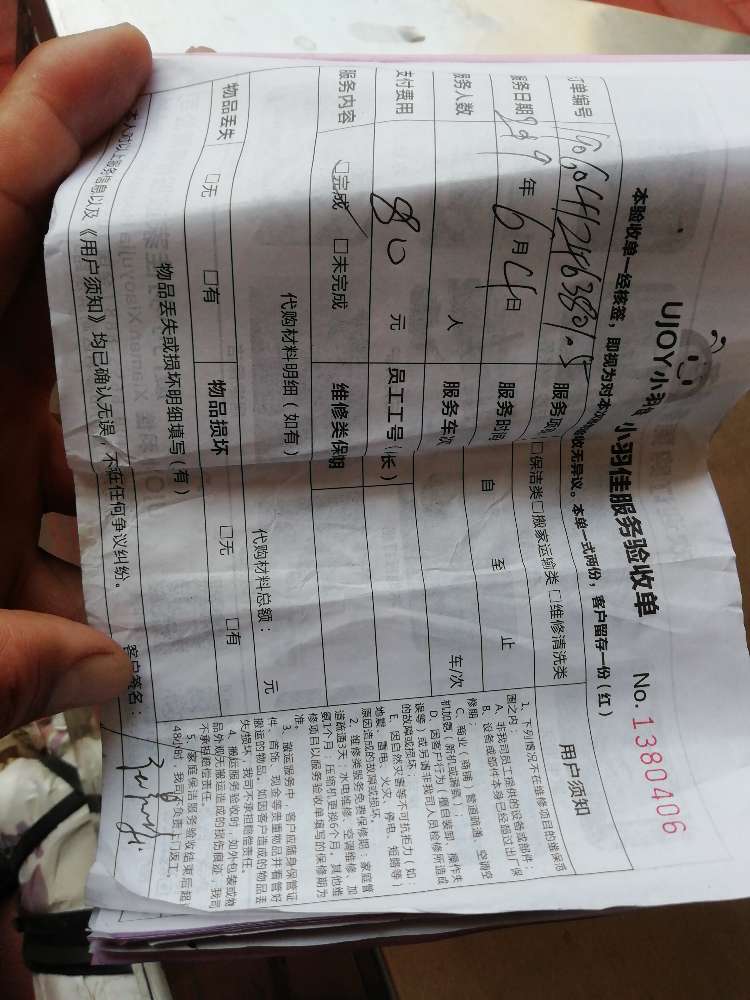 UJOY小羽佳
小羽佳服务验收单 No. 1380406
本验收单一经核签，即视为对本 验收无异议。本单一式两份，客户留存一份（红）
订单编号 服务项
□保洁类 □搬家运输类 □维修清洗类
服务日期 2019 年 6 月 4 日 服务时间 自 至 止
服务人数 人 服务车次 车/次
支付费用 80 元 员工工号（长）
服务内容 ☑完成 □未完成 维修类保
代购材料明细（如有） 代购材料总额： 元
物品丢失 □无 □有 物品损坏 □无 □有
物品丢失或损坏明细填写（有）
以上服务信息以及《用户须知》均已确认无误，不存在任何争议纠纷。 客户签名：
用户须知
1、下列情况不在维修项目的维保范
围之内
A、非我司员工提供的设备或部件；
B、设备或部件本身已经超过出厂保
修期；
C、商业（商铺）管道疏通、空调空
机加氨、新机或漏氨；
D、因客户行为（擅自装卸、操作失
误等）或另请非我司人员维修所造成
的故障或损坏，
E、因自然灾害等不可抗拒力（如：
地震、雷电、火灾、停电、短路等）
原因造成的故障或损坏。
2、维修类服务免费保修期，家庭管
道疏通3天；水电维修、空调维修、加
氨1个月；压缩机更换6个月。其他维
修项目以服务验收单填写的保修期为
准。
3、搬运服务中，客户应随身保管证
件、首饰、现金等贵重物品并看管好
搬运的物品。如因客户造成的物品丢
失/损坏，我司不承担赔偿责任。
4、搬运服务验收时，如外包装或物
品外观无搬运造成的损伤痕迹，我司
不承担赔偿责任。
5、家庭保洁服务验收结束后超
48小时，我司 负责上门返工。